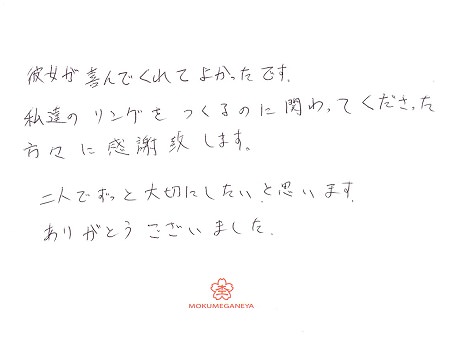 彼女が喜んでくれてよかったです.
私達のリングをつくるのに関わってくださった
方々に感謝致します。
二人でずっと大切にしたいと思います.
ありがとうございました.
MOKUMEGANEYA